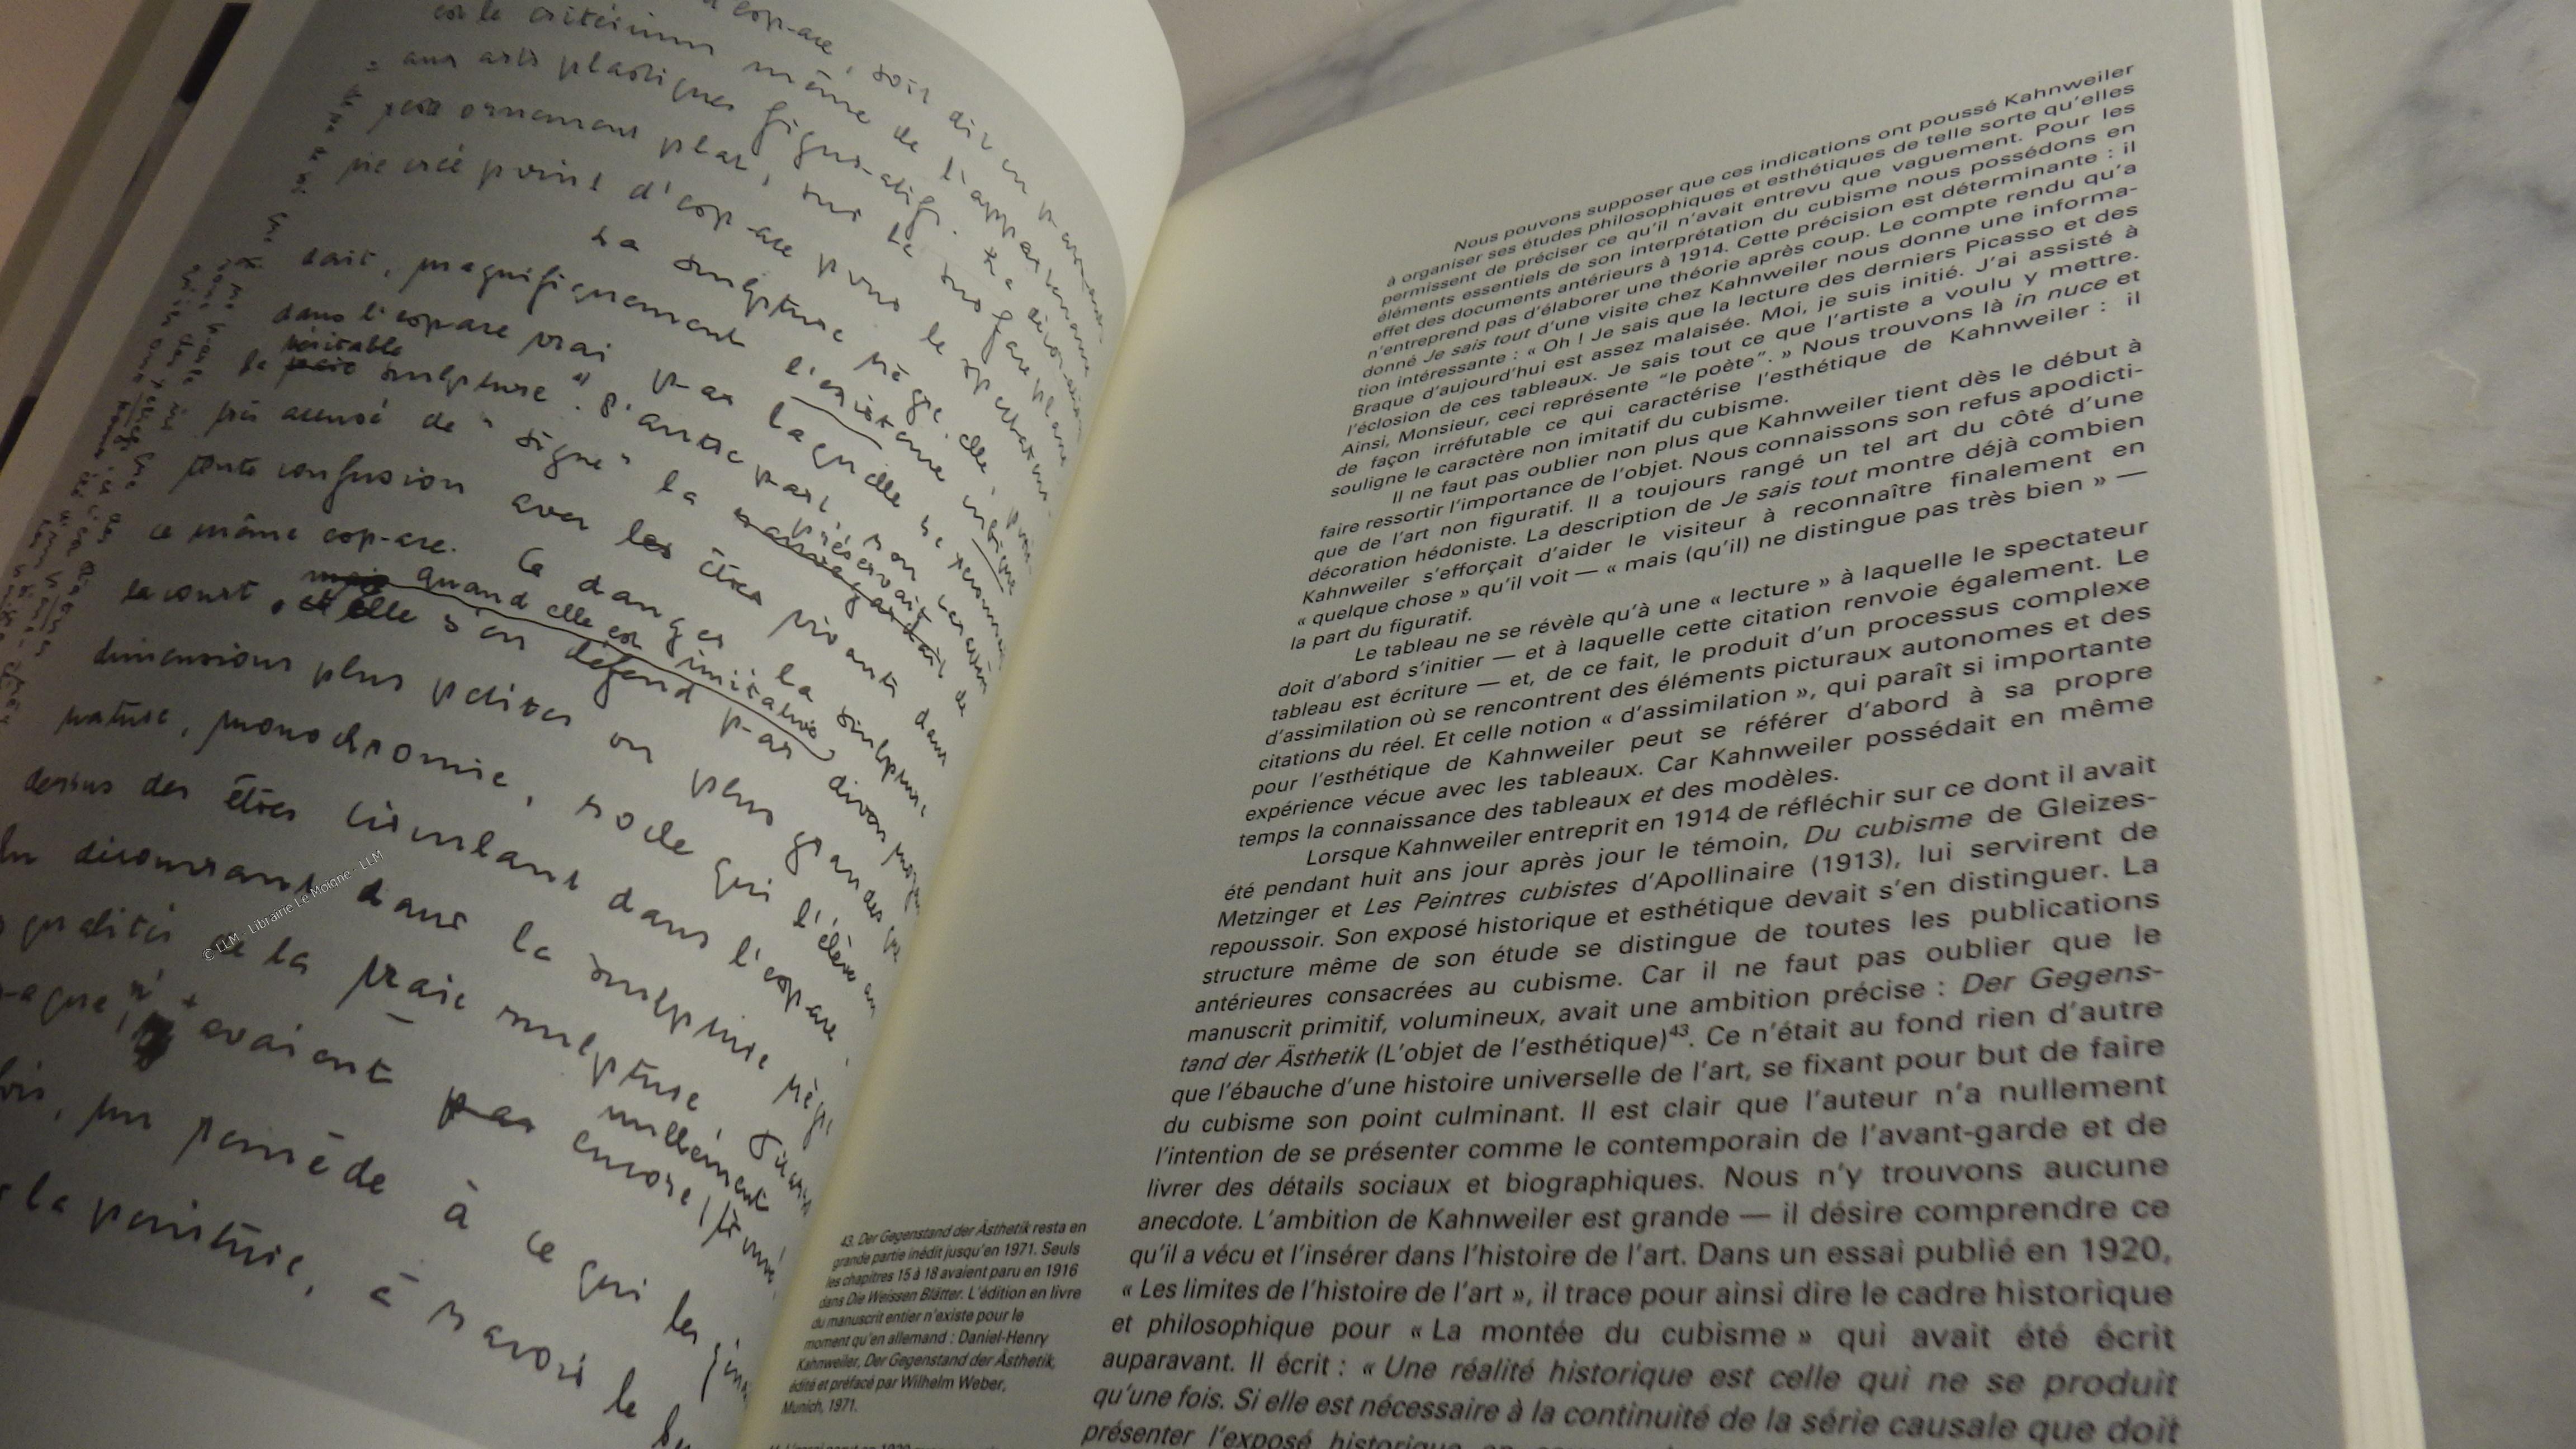 esp-ace, soit dit en p
est le critérium même de l'appartenance
aux arts plastiques figuratifs. La décoration
ornement plat, sur le
ne crée point d'esp-ace pour le spectateur.
La sculpture nègre, elle,
dait, magnifiquement l'existence
dans l'esp-ace vrai p-ar laquelle se
véritable
la sculpture". D'autre part, son caractère
très accusé de "signe" la préservait de
toute confusion avec les êtres vivants dans
ce même esp-ace. Ce danger la sculpture
quand elle est imitative
le court, et elle s'en défend p-ar divers
dimensions plus petites ou plus grandes que
nature, monochromie, socle qui l'élève au
dessus des êtres circulant dans l'esp-ace
découvrant dans la sculpture nègre
qualités de la vraie sculpture
nullement
avaient pas encore
un remède à ce qui les
la peinture, à savoir le
© LLM - Librairie Le Moigne - LLM
Nous pouvons supposer que ces indications ont poussé Kahnweiler
à organiser ses études philosophiques et esthétiques de telle sorte qu'elles
permissent de préciser ce qu'il n'avait entrevu que vaguement. Pour les
éléments essentiels de son interprétation du cubisme nous possédons en
effet des documents antérieurs à 1914. Cette précision est déterminante : il
n'entreprend pas d'élaborer une théorie après coup. Le compte rendu qu'a
donné Je sais tout d'une visite chez Kahnweiler nous donne une informa-
tion intéressante : « Oh ! Je sais que la lecture des derniers Picasso et des
Braque d'aujourd'hui est assez malaisée. Moi, je suis initié. J'ai assisté à
l'éclosion de ces tableaux. Je sais tout ce que l'artiste a voulu y mettre.
Ainsi, Monsieur, ceci représente "le poète". » Nous trouvons là in nuce et
de façon irréfutable ce qui caractérise l'esthétique de Kahnweiler : il
souligne le caractère non imitatif du cubisme.
Il ne faut pas oublier non plus que Kahnweiler tient dès le début à
faire ressortir l'importance de l'objet. Nous connaissons son refus apodicti-
que de l'art non figuratif. Il a toujours rangé un tel art du côté d'une
décoration hédoniste. La description de Je sais tout montre déjà combien
Kahnweiler s'efforçait d'aider le visiteur à reconnaître finalement en
« quelque chose » qu'il voit — « mais (qu'il) ne distingue pas très bien » —
la part du figuratif.
Le tableau ne se révèle qu'à une « lecture » à laquelle le spectateur
doit d'abord s'initier — et à laquelle cette citation renvoie également. Le
tableau est écriture — et, de ce fait, le produit d'un processus complexe
d'assimilation où se rencontrent des éléments picturaux autonomes et des
citations du réel. Et celle notion « d'assimilation », qui paraît si importante
pour l'esthétique de Kahnweiler peut se référer d'abord à sa propre
expérience vécue avec les tableaux. Car Kahnweiler possédait en même
temps la connaissance des tableaux et des modèles.
Lorsque Kahnweiler entreprit en 1914 de réfléchir sur ce dont il avait
été pendant huit ans jour après jour le témoin, Du cubisme de Gleizes-
Metzinger et Les Peintres cubistes d'Apollinaire (1913), lui servirent de
repoussoir. Son exposé historique et esthétique devait s'en distinguer. La
structure même de son étude se distingue de toutes les publications
antérieures consacrées au cubisme. Car il ne faut pas oublier que le
manuscrit primitif, volumineux, avait une ambition précise : Der Gegens-
tand der Ästhetik (L'objet de l'esthétique)43. Ce n'était au fond rien d'autre
que l'ébauche d'une histoire universelle de l'art, se fixant pour but de faire
du cubisme son point culminant. Il est clair que l'auteur n'a nullement
l'intention de se présenter comme le contemporain de l'avant-garde et de
livrer des détails sociaux et biographiques. Nous n'y trouvons aucune
anecdote. L'ambition de Kahnweiler est grande — il désire comprendre ce
qu'il a vécu et l'insérer dans l'histoire de l'art. Dans un essai publié en 1920,
« Les limites de l'histoire de l'art », il trace pour ainsi dire le cadre historique
et philosophique pour « La montée du cubisme » qui avait été écrit
auparavant. Il écrit : « Une réalité historique est celle qui ne se produit
qu'une fois. Si elle est nécessaire à la continuité de la série causale que doit
présenter l'exposé historique
43. Der Gegenstand der Ästhetik resta en
grande partie inédit jusqu'en 1971. Seuls
les chapitres 15 à 18 avaient paru en 1916
dans Die Weissen Blätter. L'édition en livre
du manuscrit entier n'existe pour le
moment qu'en allemand : Daniel-Henry
Kahnweiler, Der Gegenstand der Ästhetik,
édité et préfacé par Wilhelm Weber,
Munich, 1971.